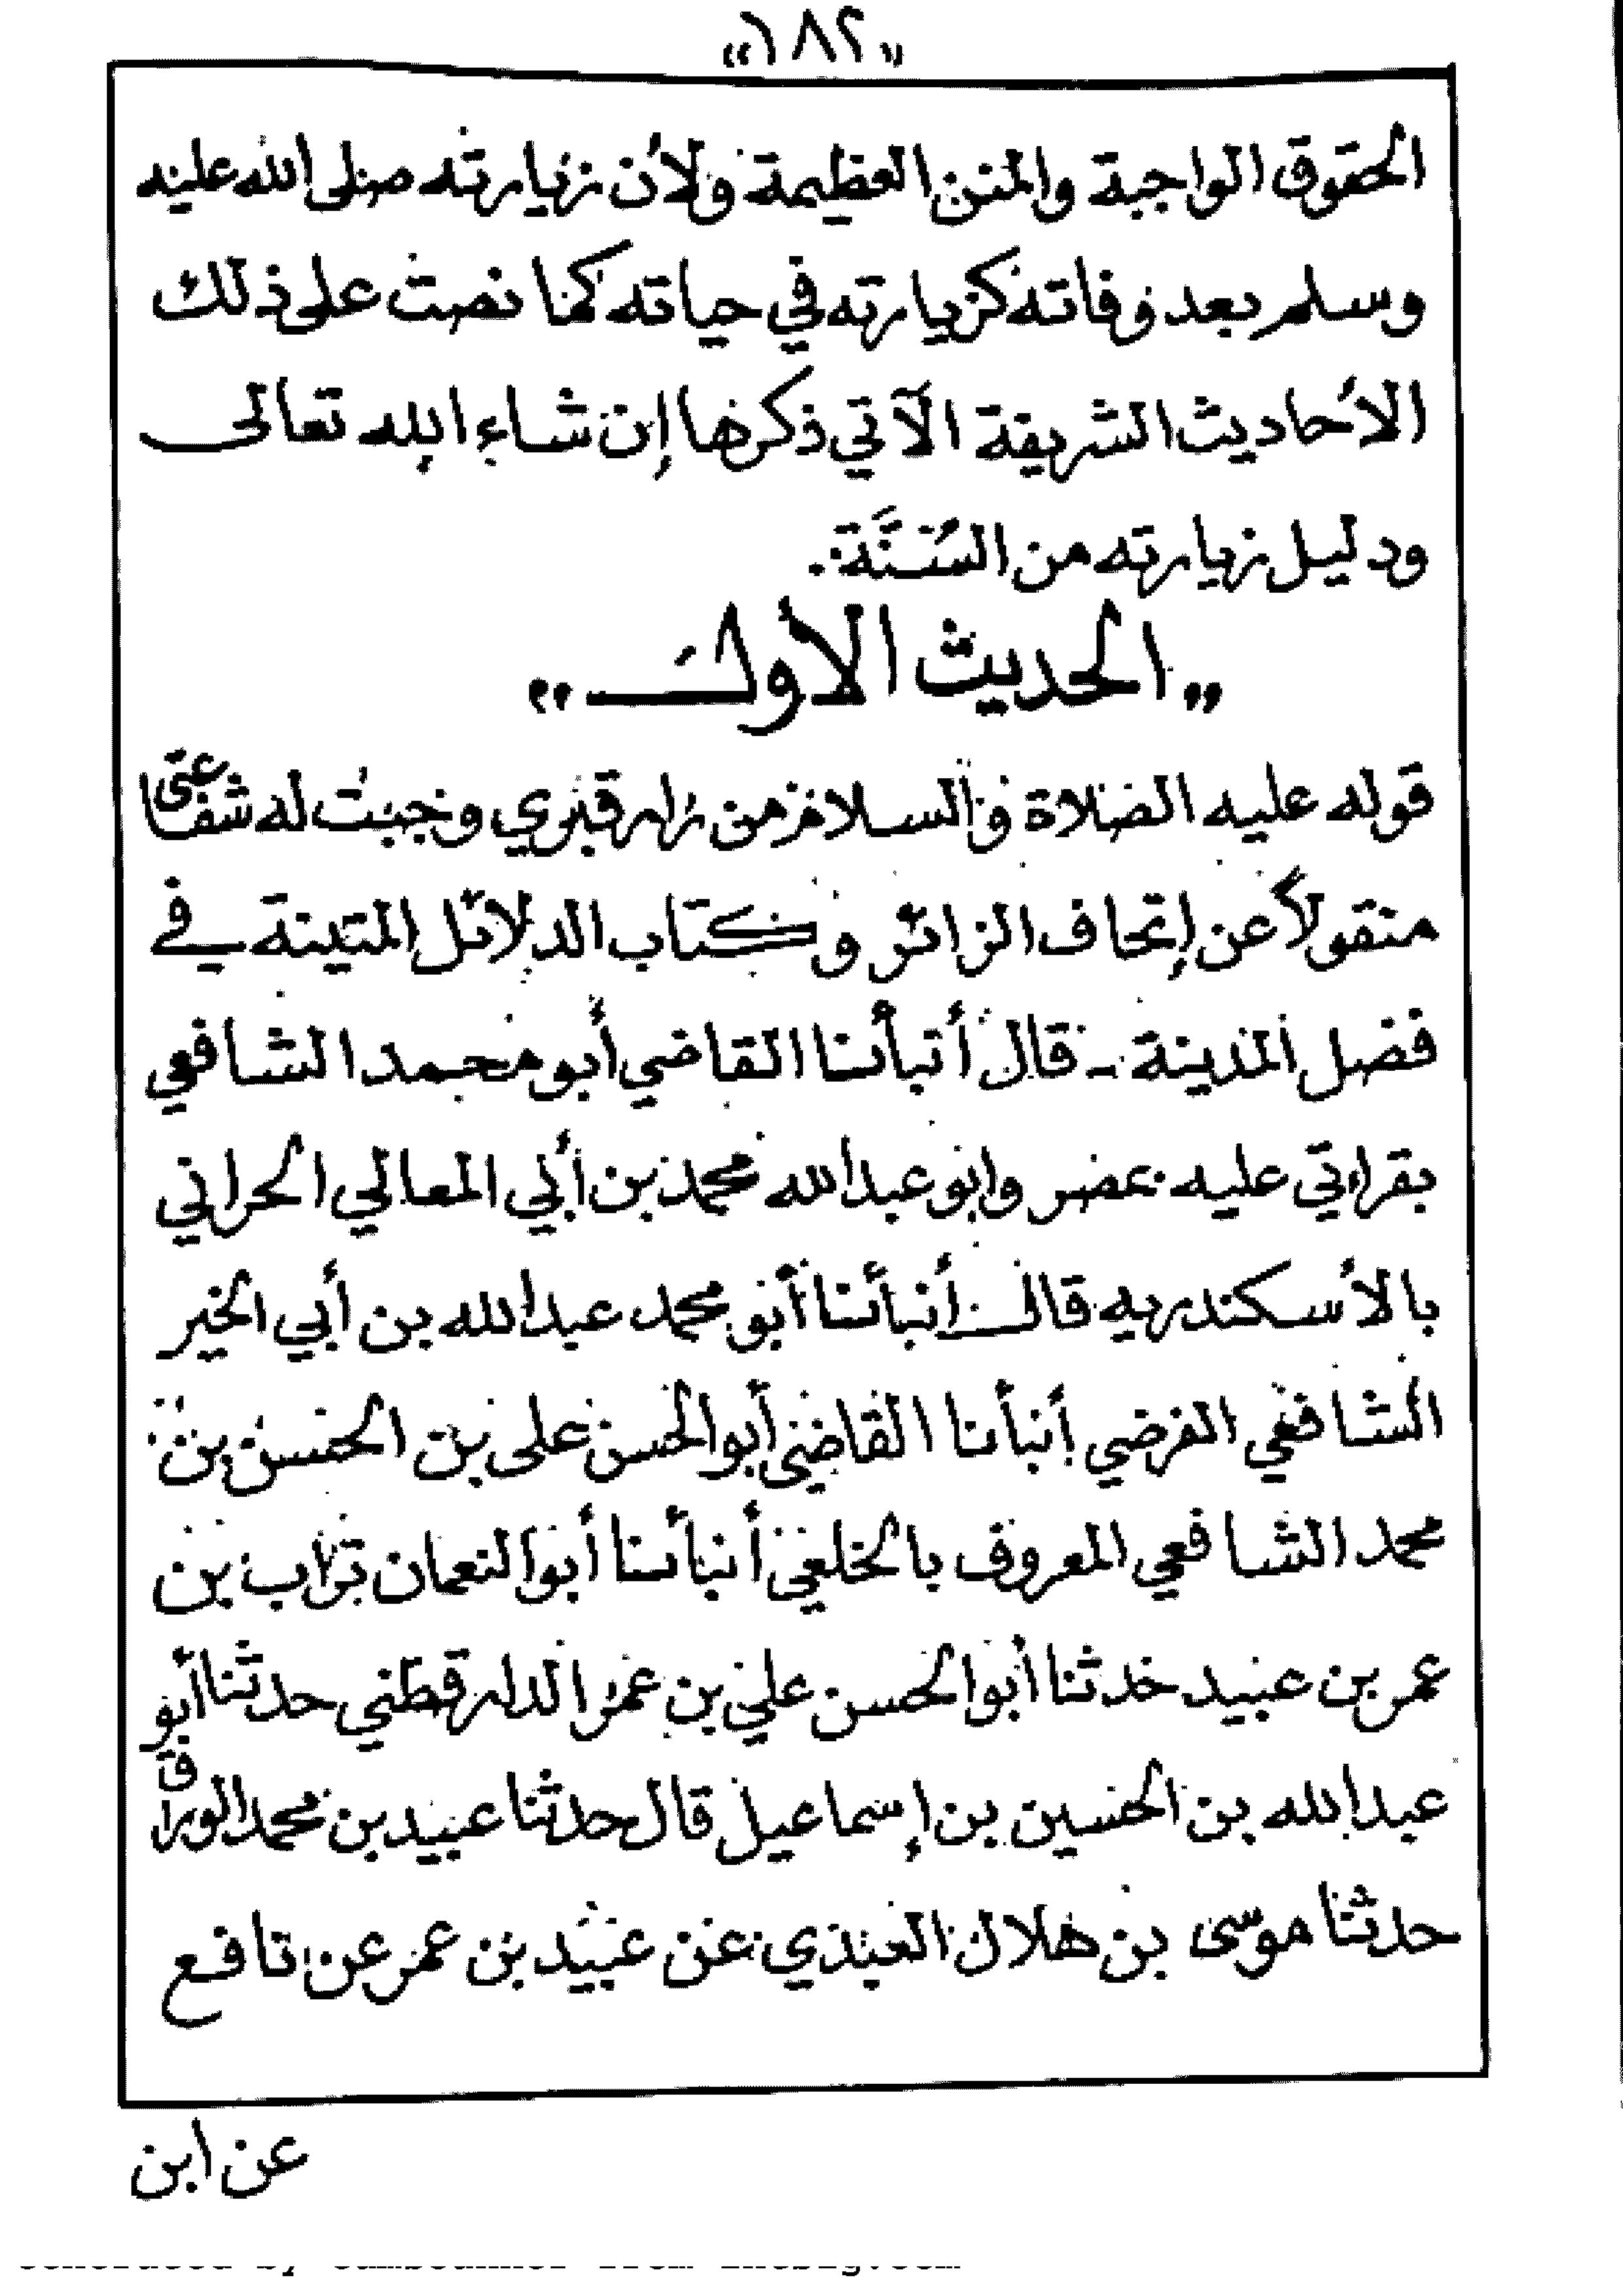 «١٨٢»
الحقوق الواجبة والمنن العظيمة ولأن زيارته صلى الله عليه
وسلم بعد وفاته كزيارته في حياته كما نصت على ذلك
الأحاديث الشريفة الآتي ذكرها إن شاء الله تعالى
ودليل زيارته من السُنَّة:.
,, الحديث الأول ,,
قوله عليه الصلاة والسلام من زار قبري وجبت له شفاعتي
منقولاً عن إتحاف الزائر وكتاب الدلائل المتينة في
فضل المدينة - قال أنبأنا القاضي أبو محمد الشافعي
بقراءتي عليه بمصر وابو عبدالله محمد بن أبي المعالي الحراني
بالأسكندريه قال أنبأنا أبو محمد عبدالله بن أبي الخير
الشافعي الفرضي أنبأنا القاضي أبو الحسن على بن الحسن بن
محمد الشافعي المعروف بالخلعي أنبأنا أبو النعمان تراب بن
عمر بن عبيد حدثنا أبو الحسن علي بن عمر الدارقطني حدثنا أبو
عبدالله بن الحسين بن إسماعيل قال حدثنا عبيد بن محمد الوراق
حدثنا موسى بن هلال العبدي عن عبيد بن عمر عن نافع
عن ابن